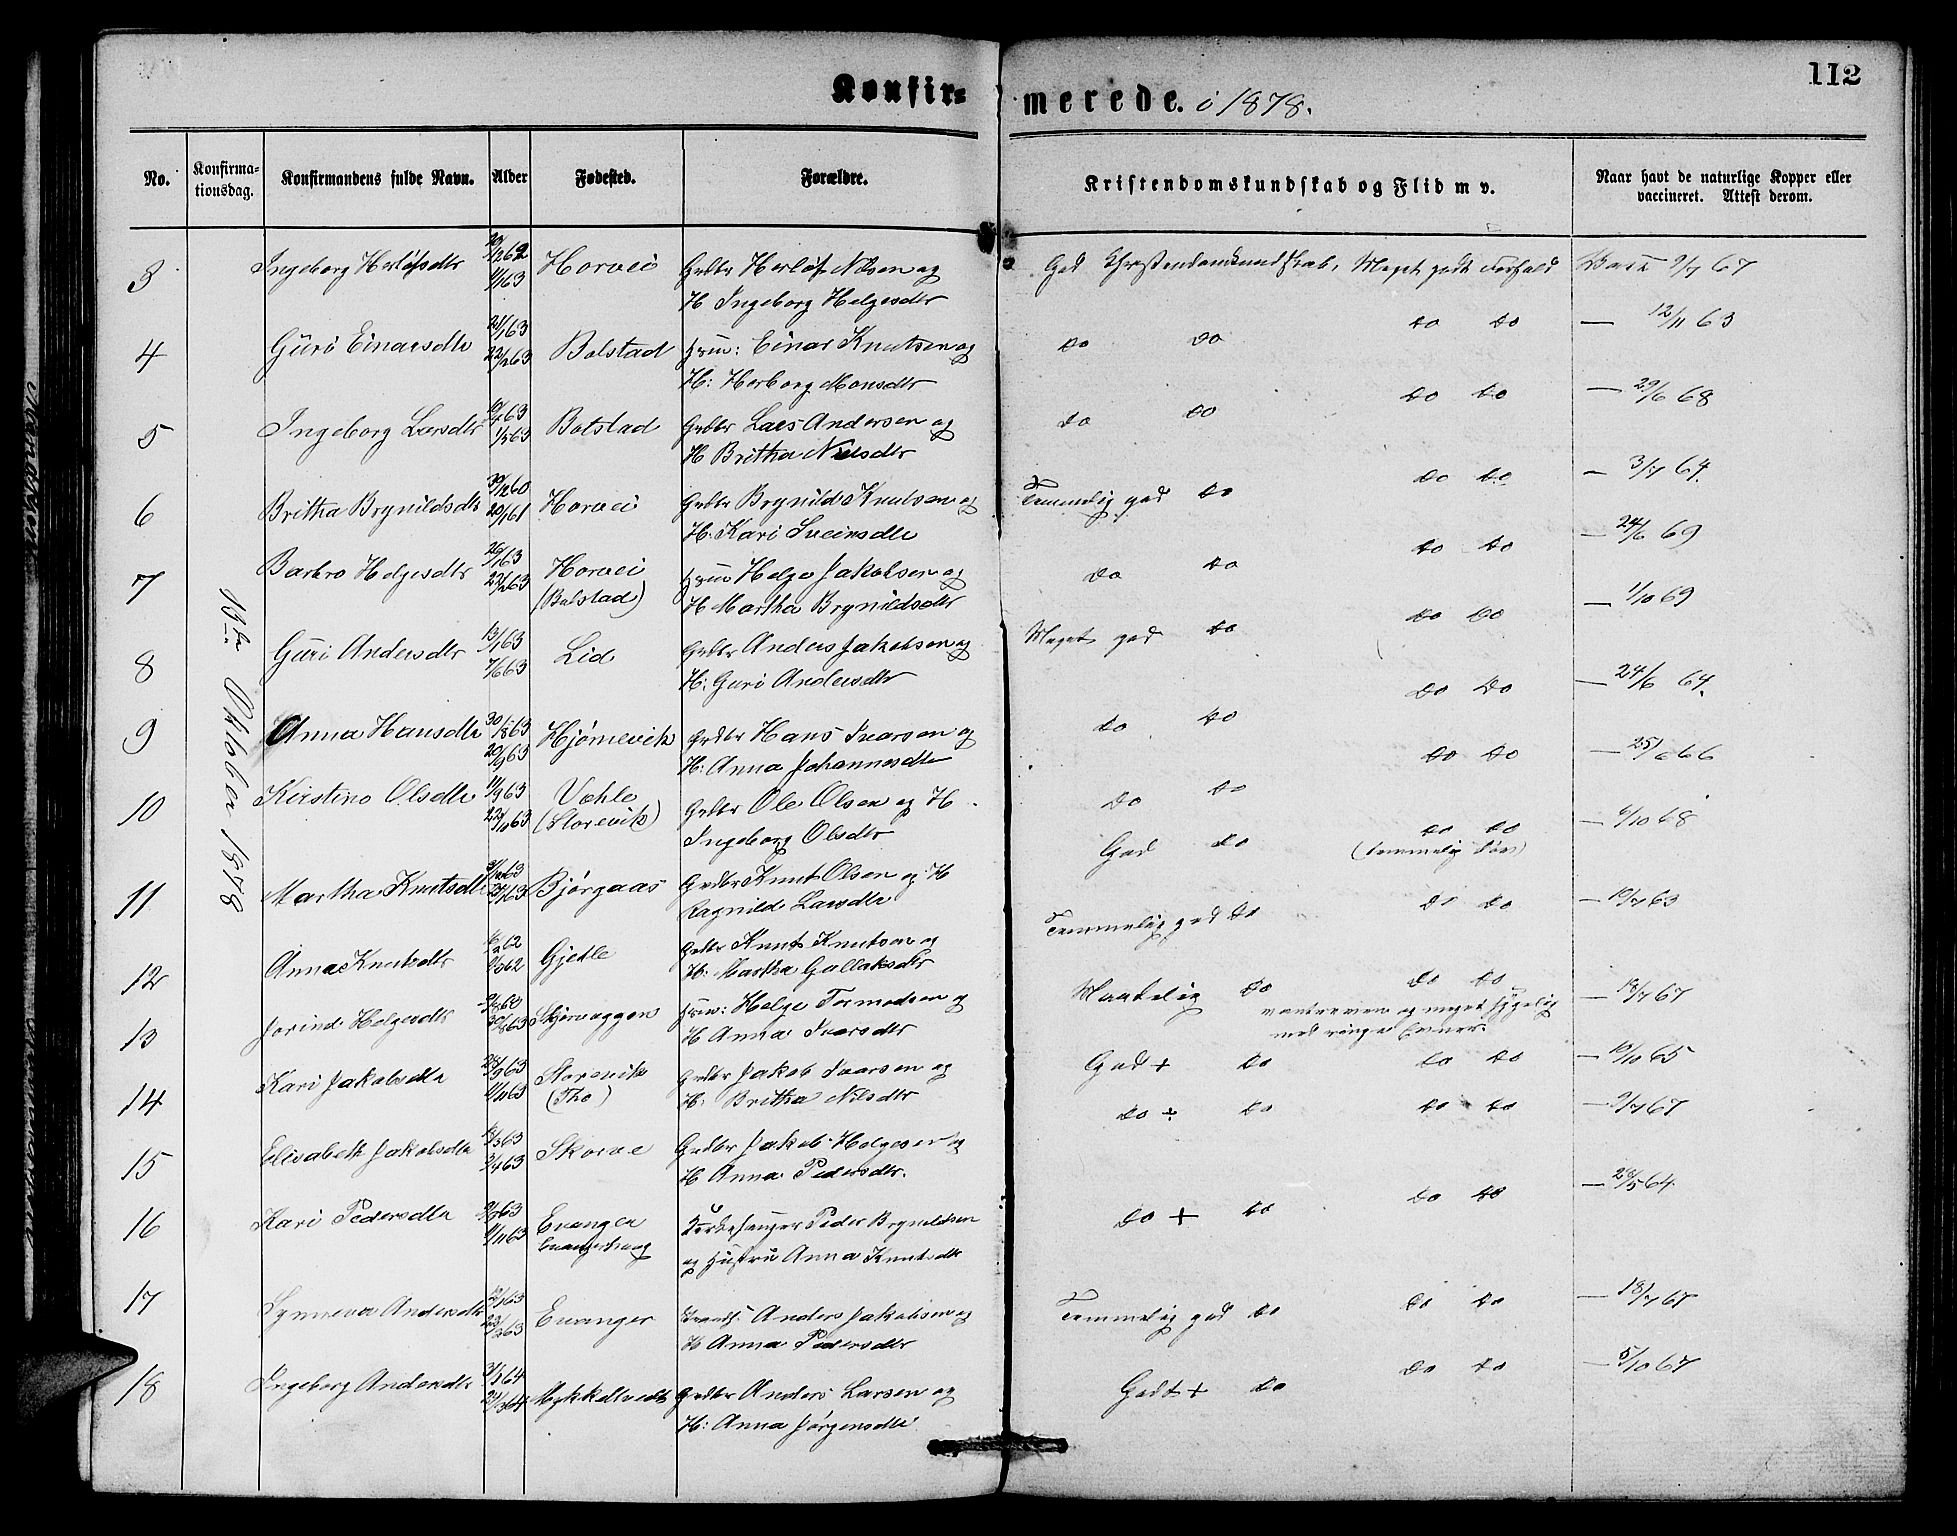 112
Konfir-merede. i 1878.
No. Konfirma-tionsdag. Konfirmandens fulde Navn. Alder Fødested. Forældre. Kristendomskundskab og Flid m v. Naar havt de naturlige Kopper eller vaccineret. Attest derom.
13de Oktober 1878
3 Ingeborg Herlofsdtr Horvei Gdbr Herlof Nilsen og God Christendomskundskab, Meget godt Forhold Vacc 9/7 67
1/1 63 H Ingeborg Helgesdtr
4 Guri Einarsdtr 22/2 63 Bolstad Huusm: Einar Knutsen og do do do do — 12/11 63
H: Herborg Monsdtr
5 Ingeborg Larsdtr Bolstad Gdbr Lars Andersen og do do do do — 29/6 68
H Britha Nilsdtr
6 Britha Brynildsdtr 30/12 60 Horvei Gdbr Brynild Knutsen og Temmelig god do do do — 3/7 64.
20/1 61 H. Kari Sveinsdtr
7 Barbro Helgesdtr 22/2 63 Horvei Huusm Helge Jakobsen og do do do do — 24/6 69
(Bolstad) H Martha Brynildsdtr
8 Guri Andersdtr 13/1 63 Lid Gdbr Anders Jakobsen og Meget god do do do — 1/10 69
7/6 63 H: Guri Andersdtr
9 Anna Hansdtr 30/8 63 Hjørnevik Gdbr Hans Ivarsen og do do do do — 24/6 64.
20/9 63 H: Anna Johannesdtr
10 Kirstine Olsdtr 14/9 63 Væhle Gdbr Ole Olsen og H do do do do — 25/6 66
22/11 63 (Storevik) Ingeborg Olsdtr
11 Martha Knutsdtr Bjørgaas Gdbr Knut Olsen og H God do do do — 6/10 68
Ragnild Larsdtr (temmelig døv)
12 Anna Knutsdtr Gjelle Gdbr Knut Knutsen og Temmelig god do do do — 19/7 63
H: Martha Gullaksdtr
13 Jorind Helgesdtr Skjervaggen Huusm: Helge Tormodsen og Maadelig do do do — 18/7 67
H Anna Ivarsdtr og meget sygelig
med ringe Evner.
14 Kari Jakobsdtr 28/9 63 Storevik Gdbr Jakob Ivarsen og God + do do do — 19/10 65
1/11 63 (Tho) H: Britha Nilsdtr
15 Elisabeth Jakobsdtr 8/3 63 Skorve Gdbr Jakob Helgesen og do + do do do — 9/7 67
3/4 63 H Anna Pedersdtr.
16 Kari Pedersdtr 1/11 63 Evanger Kirkesanger Peder Brynildsen do + do do do — 28/5 64
Evangerhaug og Hustru Anna Knutsdtr
17 Synneva Andersdtr 22/2 63 Evanger Anders Jakobsen og Temmelig god do do do — 18/7 67
H Anna Pedersdtr
18 Ingeborg Andersdtr 3/3 64 Mykkeltvedt Gdbr Anders Larsen og Godt + do do do — 5/10 67
H: Anna Jørgensdtr